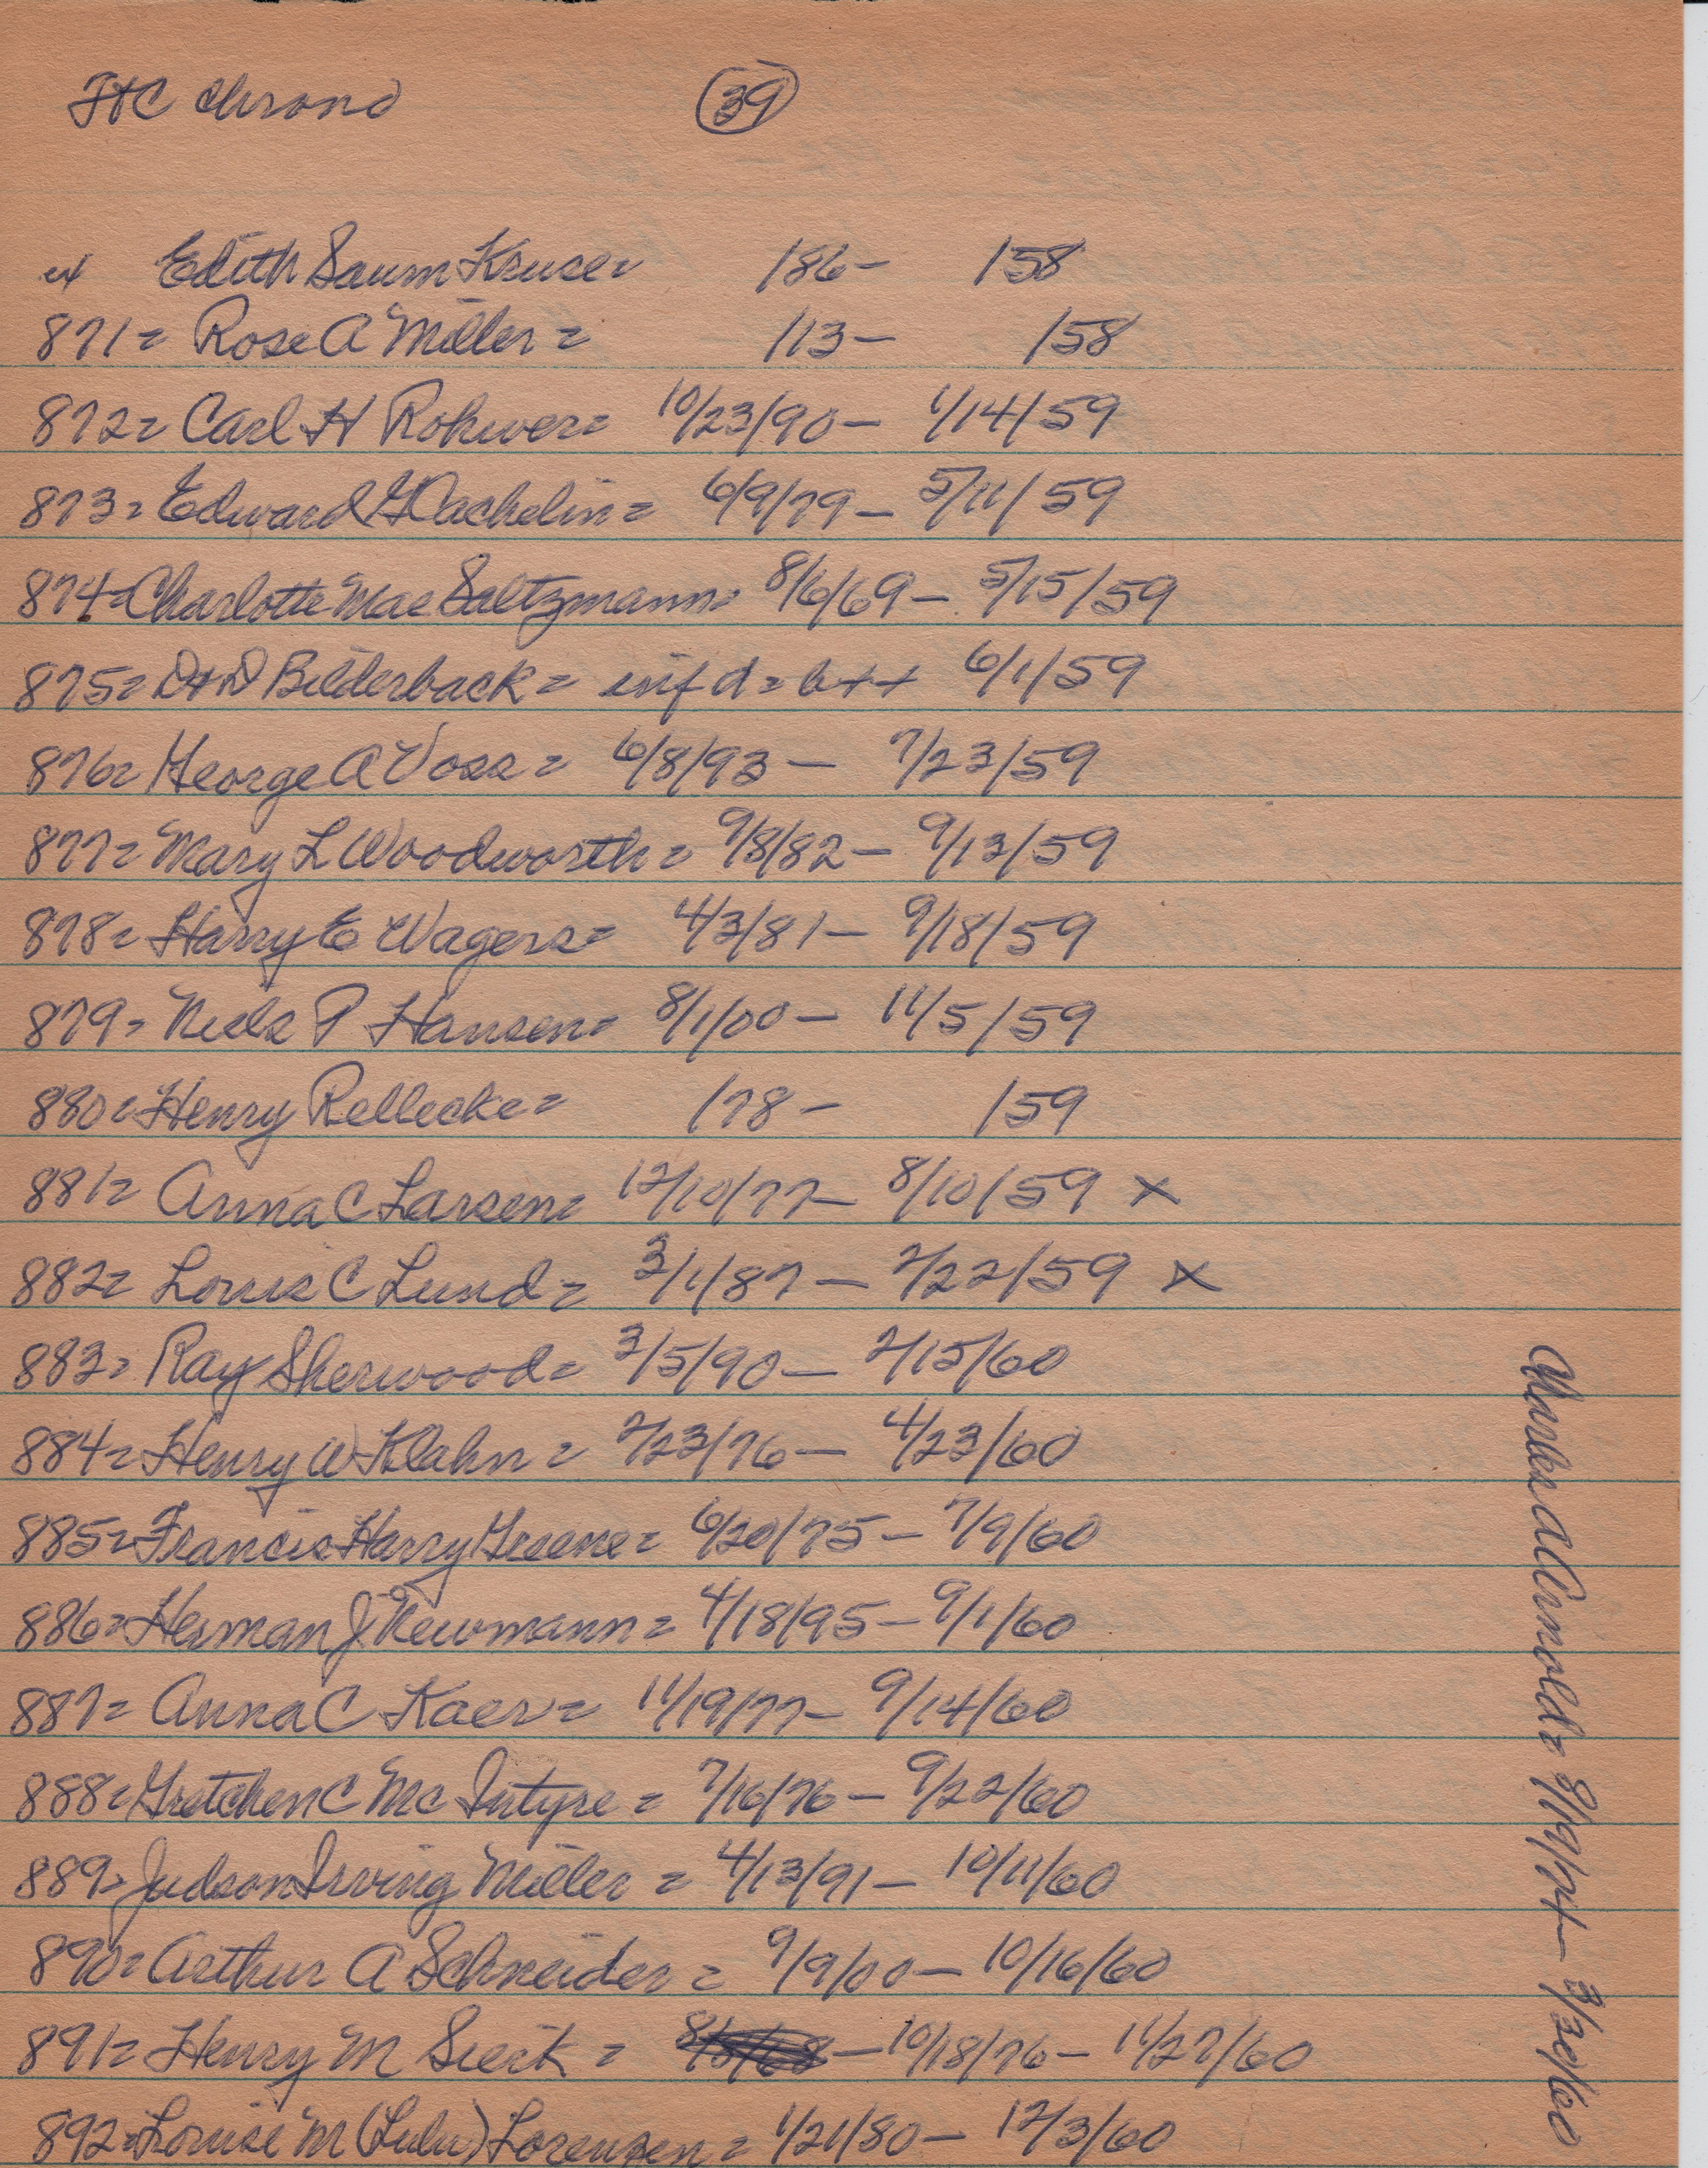 FHC Chrono 39
ex Edith Saum Kruse = /86 - /58
871 = Rose A Miller = /13 - /58
872 = Carl H Rohwer = 10/23/90 - 1/14/59
873 = Edward G Wachelin = 6/9/79 - 5/11/59
874 = Charlotte Mae Saltzmann = 8/6/69 - 5/15/59
875 = D+D Bilderback = inf d = b++ 6/1/59
876 = George A Voss = 6/8/93 - 7/23/59
877 = Mary L Woodworth = 9/8/82 - 9/13/59
878 = Harry E Wagers = 4/3/81 - 9/18/59
879 = Niels P Hansen = 8/1/00 - 11/5/59
880 = Henry Rellecke = /78 - /59
881 = Anna C Larsen = 12/10/77 - 8/10/59 x
882 = Louis C Lund = 3/1/87 - 2/22/59 x
883 = Ray Sherwood = 3/5/90 - 2/15/60
884 = Henry W Klahn = 2/23/76 - 4/23/60
885 = Francis Harry Greene = 6/20/75 - 7/9/60
886 = Herman J Newmann = 4/18/95 - 9/1/60
887 = Anna C Kaer = 11/19/77 - 9/14/60
888 = Gretchen C McIntyre = 7/16/76 - 9/22/60
889 = Judson Irving Miller = 4/13/91 - 10/11/60
890 = Arthur A Schneider = 9/9/00 - 10/16/60
891 = Henry M Sieck = - 10/18/76 - 11/27/60
892 = Louise M (Lulu) Lorenzen = 1/21/80 - 12/3/60
Charles A Arnold = 9/19/04 - 3/30/60